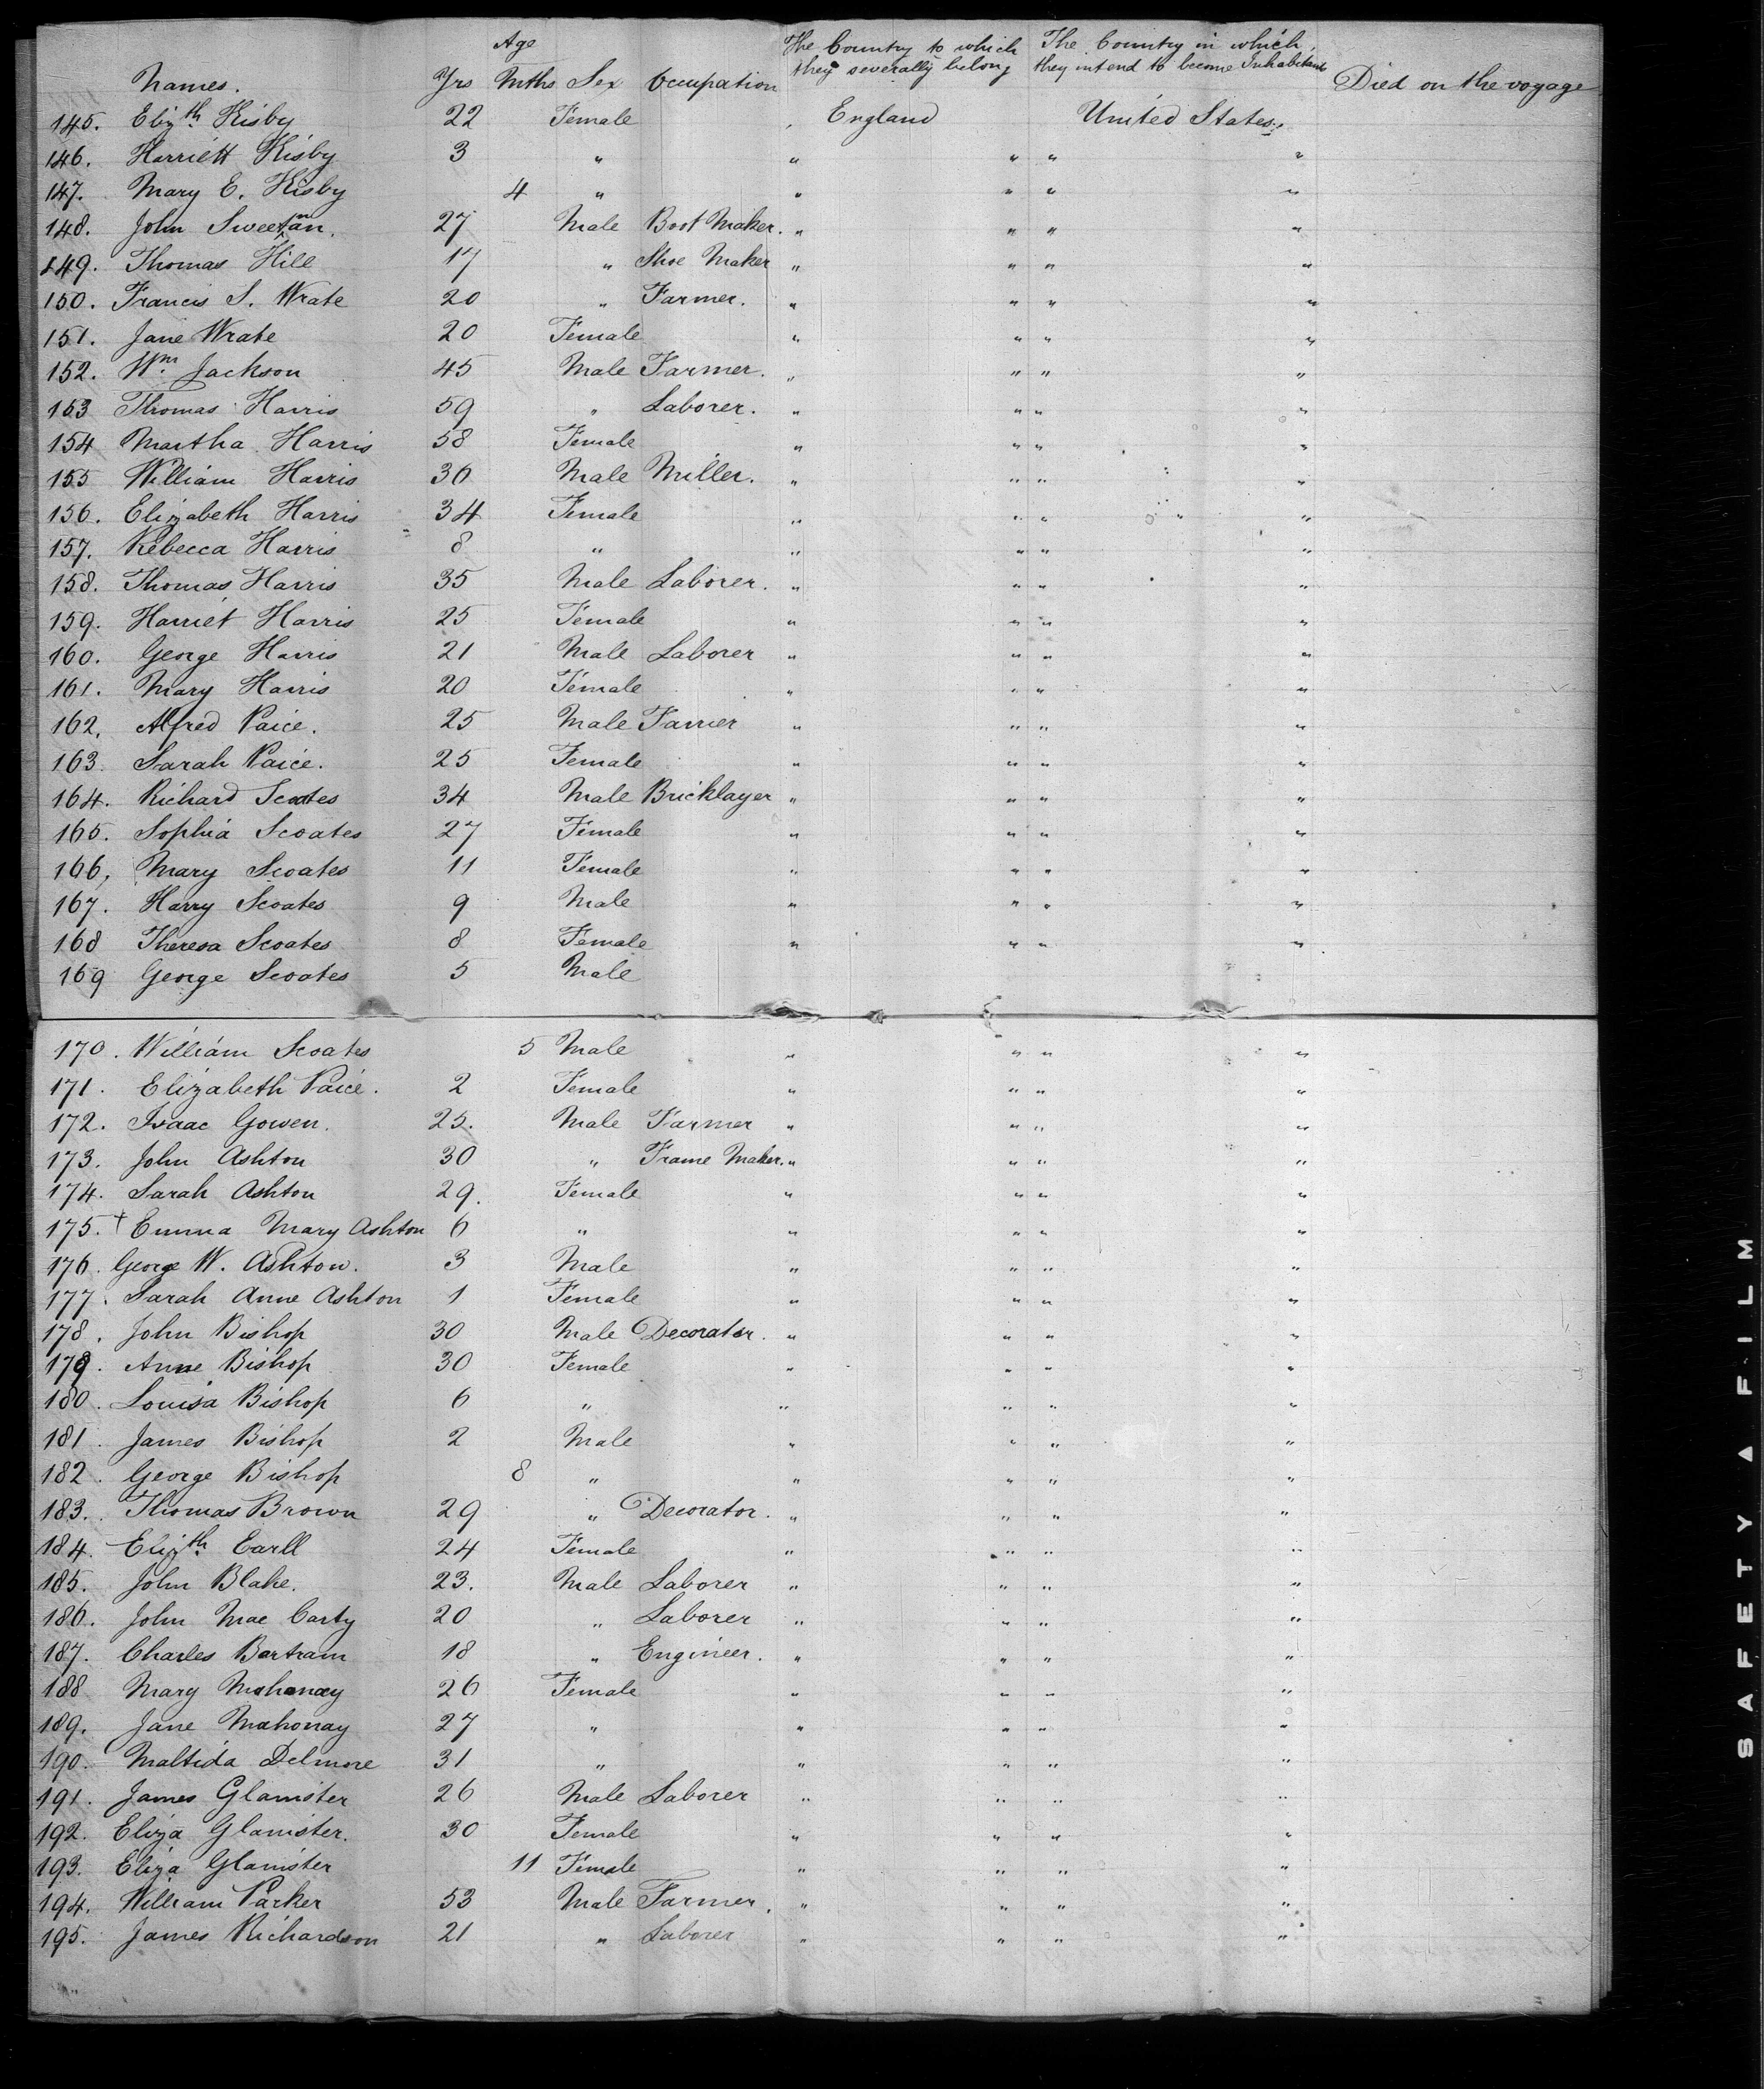 Age The Country to which The Country in which
Names. Yrs Mths Sex Occupation they severally belong they intend to become Inhabitants Died on the voyage
145. Elizth. Kisby 22 Female England United States
146. Harriett Kisby 3 " " " " "
147. Mary E. Kisby 4 " " " " "
148. John Sweetman. 27 Male Boot Maker. " " " "
149. Thomas Hill 17 " Shoe Maker " " " "
150. Francis S. Wrate 20 " Farmer. " " " "
151. Jane Wrate 20 Female " " " "
152. Wm. Jackson 45 Male Farmer. " " " "
153 Thomas Harris 59 " Laborer. " " " "
154 Martha Harris 58 Female " " " "
155 William Harris 36 Male Miller. " " " "
156. Elizabeth Harris 34 Female " " " "
157. Rebecca Harris 8 " " " " "
158. Thomas Harris 35 Male Laborer. " " " "
159. Harriet Harris 25 Female " " " "
160. George Harris 21 Male Laborer " " " "
161. Mary Harris 20 Female " " " "
162. Alfred Paice. 25 Male Farrier " " " "
163. Sarah Paice. 25 Female " " " "
164. Richard Scoates 34 Male Bricklayer " " " "
165. Sophia Scoates 27 Female " " " "
166, Mary Scoates 11 Female " " " "
167. Harry Scoates 9 Male " " " "
168 Theresa Scoates 8 Female " " " "
169 George Scoates 5 Male
170. William Scoates 5 Male " " " "
171. Elizabeth Paice. 2 Female " " " "
172. Isaac Gowen. 25. Male Farmer " " " "
173. John Ashton 30 " Frame Maker. " " " "
174. Sarah Ashton 29. Female " " " "
175. † Emma Mary Ashton 6 " " " " "
176. George W. Ashton. 3 Male " " " "
177. Sarah Anne Ashton 1 Female " " " "
178. John Bishop 30 Male Decorator. " " " "
179. Anne Bishop 30 Female " " " "
180. Louisa Bishop 6 " " " " "
181. James Bishop 2 Male " " " "
182. George Bishop 8 " " " " "
183. Thomas Brown 29 " Decorator. " " " "
184. Elizth. Earll 24 Female " " " "
185. John Blake. 23. Male Laborer " " " "
186. John Mac Carty 20 " Laborer " " " "
187. Charles Bartram 18 " Engineer. " " " "
188 Mary Mahonay 26 Female " " " "
189. Jane Mahonay 27 " " " " "
190. Maltida Delmore 31 " " " " "
191. James Glanister 26 Male Laborer " " " "
192. Eliza Glanister. 30 Female " " " "
193. Eliza Glanister 11 Female " " " "
194. William Parker 53 Male Farmer. " " " "
195. James Richardson 21 " Laborer " " " "
SAFETY FILM